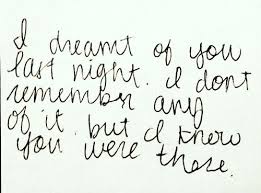 I dreamt of you
last night. I dont
remember any
of it. but I knew
you were there.